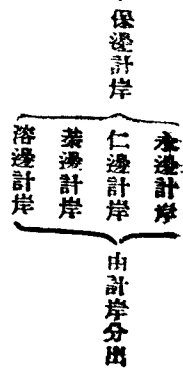 保邊計岸
永邊計岸
仁邊計岸
葉邊計岸
溶邊計岸
由計岸分出